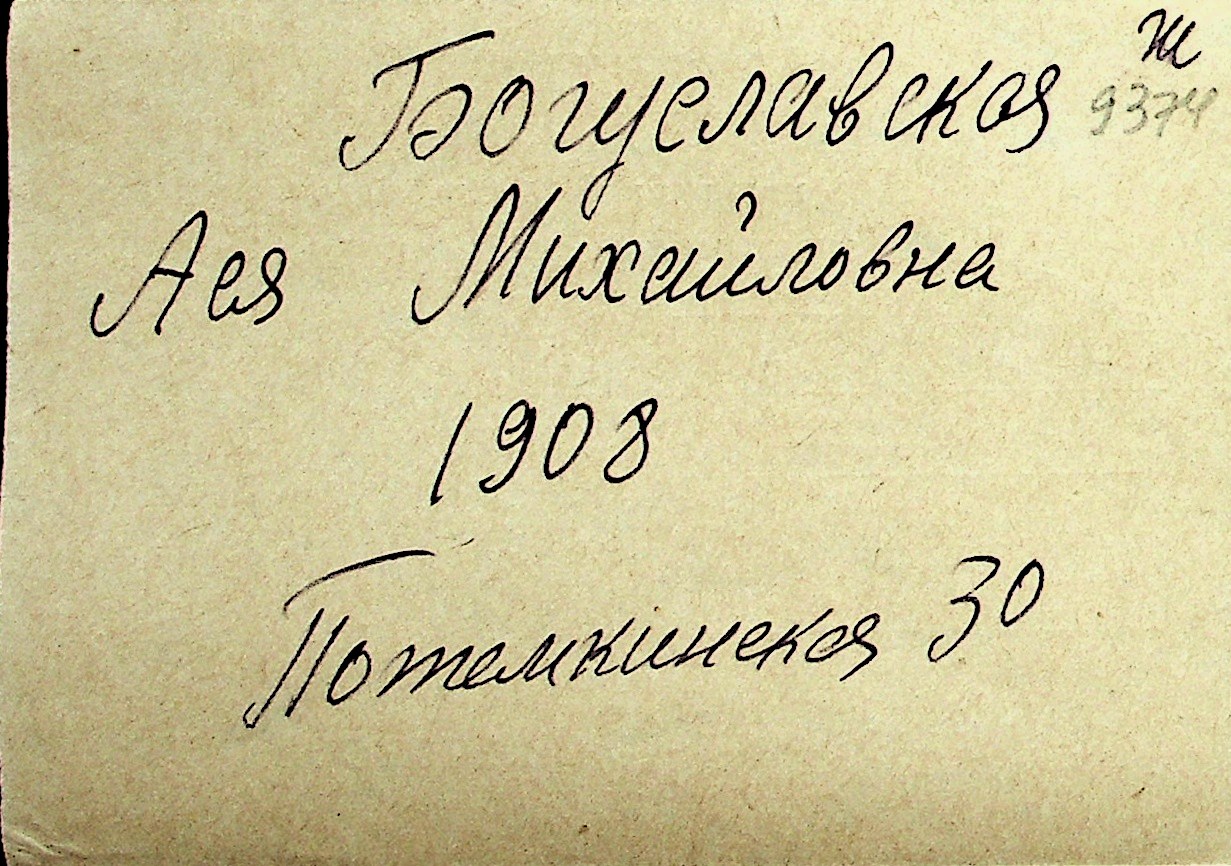 Богуславская Ж
9374
Ася Михайловна
1908
Потемкинская 30